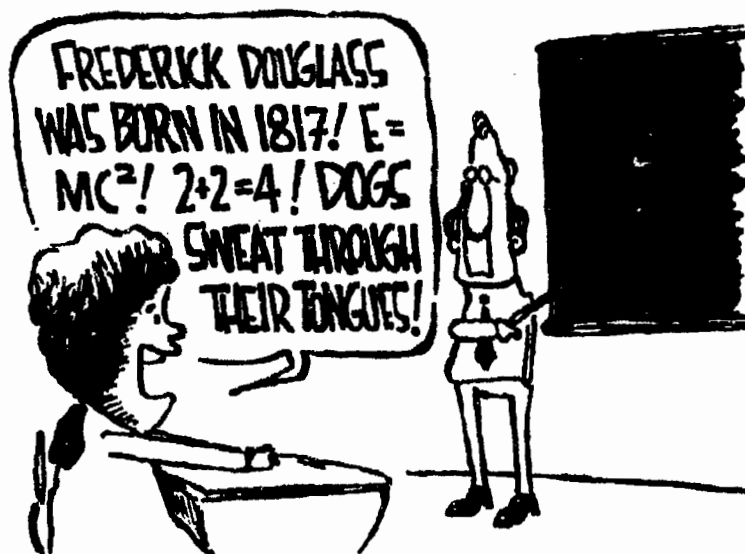 FREDERICK DOUGLASS
WAS BORN IN 1817! E=
MC²! 2+2=4! DOGS
SWEAT THROUGH
THEIR TONGUES!